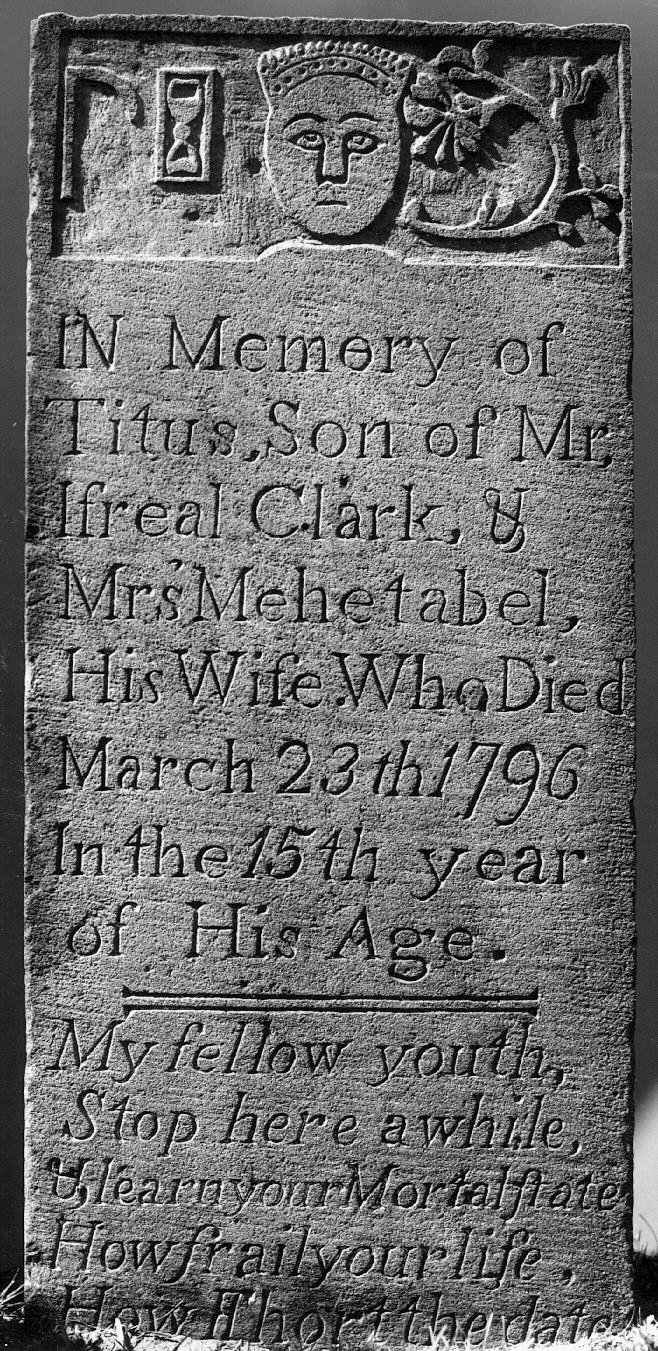 IN Memory of
Titus, Son of Mr.
Iſreal Clark, &
Mrs Mehetabel,
His Wife. Who Died
March 23th 1796
In the 15th year
of His Age.
My fellow youth,
Stop here awhile,
& learn your Mortal ſtate
How frail your life,
How ſhort the date